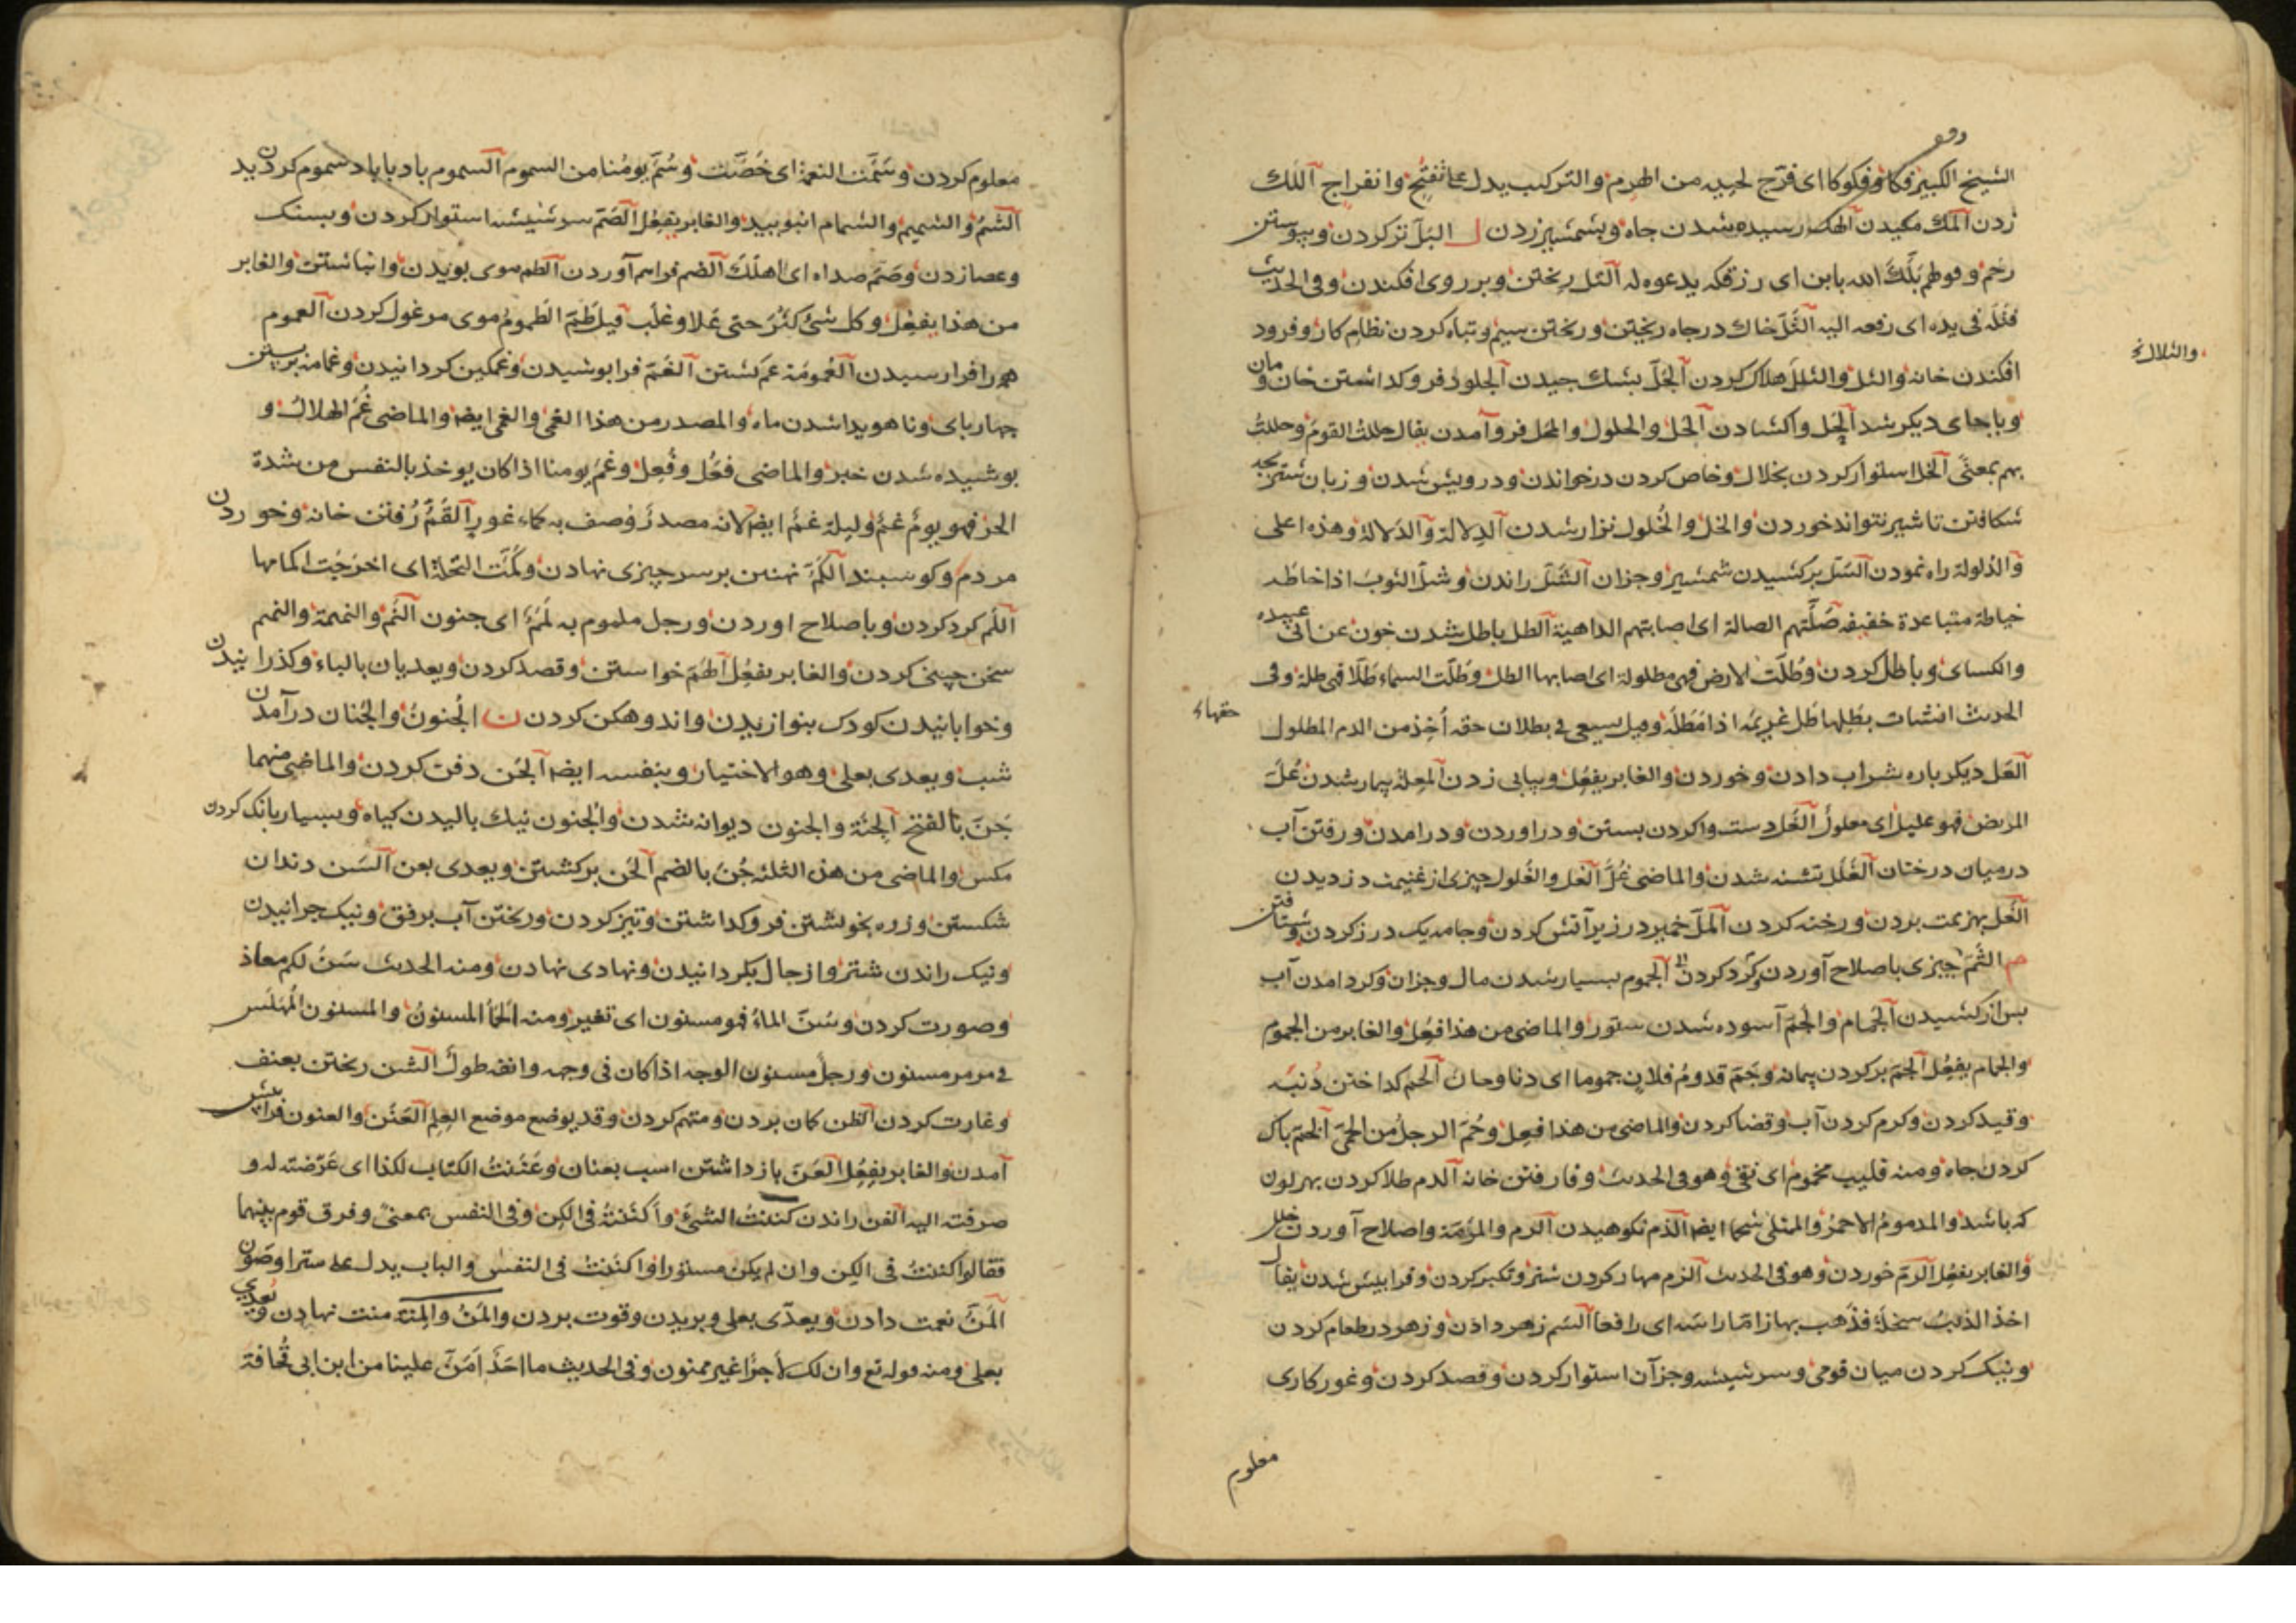 الشيخ الكبير فكا وفكوكا اى فرّج لحييه من الهرم والتركيب يدل على تفتّح وانفراج اللك
زدن المك مكيدن الهك رسيده شدن جاه وبشمشير زدن ل البلّ تر كردن وپيوستن
رحم وقولهم بلّك الله بابن اى رزقكه يدعو له التل ريختن وبر روى افكندن وفى الحديث
فتله فى يده اى دفعه اليه الثلّ خاك در جاه ريختن وريختن سيم وتباه كردن نظام كار وفرود
والثلال
افكندن خانه والثل والثلل هلاك كردن الجلّ پشك چيدن الجلود فرو كذاشتن خان ومان
وبا جاى ديكر شد الحل واكشادن الحل والحلول والمحل فرو آمدن يقال حللت القوم وحللت
بهم بمعنى الخل استوار كردن بخلال وخاص كردن در خواندن ودرويش شدن وزبان شتر بچه
شكافتن تا شير نتواند خوردن والخل والخلول نزار شدن الدلالة والدلالة وهذه اعلى
والدلولة راه نمودن السّل بر كشيدن شمشير وجزان الشّل راندن وشلّ الثوب اذا خاطه
خياطة متباعدة خفيفه صلّتهم الصالة اى اصابتهم الداهية الطل باطل شدن خون عن ابى عبيده
والكساى وباطل كردن وطلّت الارض فهى مطلولة اى اصابها الطل وطلّت السماء طلا فهى طلة وفى
الحديث انشات بطلها طل غريمه اذا مطله وقيل يسعى فى بطلان حقه اخذ من الدم المطلول
حقهاء
العل ديكر باره شراب دادن وخوردن والغابر يفعل وپياپى زدن العلة بيمار شدن علّ
المريض فهو عليل اى معلول الغل دست واكردن بستن ودر اوردن ودر امدن ورفتن آب
در ميان درختان الغلل تشنه شدن والماضى غلّ الغل والغلول چيزى از غنيمت دزديدن
الفل بهزيمت بردن ورخنه كردن الملّ خمير در زير آتش كردن وجامه يك درز كردن وشتافتن
م الثمّ چيزى باصلاح آوردن وكرد كردن الجموم بسيار شدن مال وجزان وكرد امدن آب
پس از كشيدن الجمام والجمّ آسوده شدن ستور والماضى من هذا فعل والغابر من الجموم
والجمام يفعل الجم پر كردن پيمانه وجمّ قدوم فلان جموما اى دنا وحان الحم كداختن دنبه
وقيد كردن وكرم كردن آب وقضا كردن والماضى من هذا فعل وحمّ الرجل من الحمى الخم پاك
كردن جاه ومنه قليب مخموم اى نقى وهو فى الحديث وفا رفتن خانه الدم طلا كردن بهر لون
كه باشد والمدموم الاحمر والممتلى شحما ايضا الذم نكوهيدن الرم والمرمة واصلاح آوردن خلل
والغابر يفعل الرم خوردن وهو فى الحديث الزم مهار كردن شتر وتكبر كردن وفرا پيش شدن يقال
اخذ الذئب سخلة فذهب بها زاما راسه اى رافعا السم زهر دادن وزهر در طعام كردن
ونيك كردن ميان قومى وسر شيشه وجزآن استوار كردن وقصد كردن وغور كارى
معلوم
معلوم كردن وسمّت النعمة اى خصّت وسمّ يومنا من السموم السموم باد با ياد سموم كرديدن
الشم والشميم والشمام انبوييد والغابر يفعل الصّم سر شيشه استوار كردن وبسنك
وعصا زدن وصمّ صداه اى اهلك الضم فراهم آوردن الطم موى بريدن وانباشتن والغابر
من هذا يفعل وكل شئ كثر حتى علا وغلب قيل طمّ الطموم موى مرغول كردن العموم
همه را فرا رسيدن العمومة عم كشتن الغمّ فرا پوشيدن وغمكين كردانيدن وغمامه بر بستن
چهارپاى وناهويدا شدن ماه والمصدر من هذا الغمى والغمى ايضا والماضى غمّ الهلال و
پوشيده شدن خبر والماضى فعل وفعل وغمّ يومنا اذا كان يوخذ بالنفس من شدة
الحر فهو يوم غمّ وليلة غمّ ايضا لانه مصدر وصف به كماء غور القمّ رفتن خانه وخوردن
مردم وكوسبند الكمّ نهنبن بر سر چيزى نهادن وكمّت النخلة اى اخرجت اكمامها
اللم كرد كردن وباصلاح اوردن ورجل ملموم به لمم اى جنون النم والنميمة والنميم
سخن چينى كردن والغابر يفعل الهمّ خواستن وقصد كردن ويعديان بالباء وكذرانيدن
وخوابانيدن كودك بنوازيدن واندوهكن كردن ن الجنون والجنان در آمدن
شب ويعدى بعلى وهو الاختيار وبنفسه ايضا الجن دفن كردن والماضى منهما
جنّ بالفتح الجنة والجنون ديوانه شدن والجنون نيك باليدن كياه وبسيار بانك كردن
مكس والماضى من هذه الثلثه جنّ بالضم الحن بر كشتن ويعدى بعن السن دندان
شكستن وزره بخويشتن فرو كداشتن وتيز كردن وريختن آب برفق ونيك چرانيدن
ونيك راندن شتر واز حال بكردانيدن ونهادى نهادن ومنه الحديث سنّ لكم معاذ
وصورت كردن وسنّ الماء فهو مسنون اى تغير ومنه الحمأ المسنون والمسنون المملس
فى مرمر مسنون ورجل مسنون الوجه اذا كان فى وجهه وانفه طول الشن ريختن بعنف
وغارت كردن الظن كمان بردن ومتهم كردن وقد يوضع موضع العلم العنن والعنون فرا پيش
آمدن والغابر يفعل العن باز داشتن اسب بعنان وعننت الكتاب لكذا اى عرّضته له و
صرفته اليه الفن راندن كننت الشئ واكننته فى الكن وفى النفس بمعنى وفرق قوم بينهما
فقالوا كننت فى الكن وان لم يكن مستورا واكننت فى النفس والباب يدل على ستر او صون
المنّ نعمت دادن ويعدّى بعلى وبريدن وقوت بردن والمن والمنة منت نهادن ويعدى
بعلى ومنه قوله تع وان لك لاجرا غير ممنون وفى الحديث ما احد امنّ علينا من ابن ابى قحافة